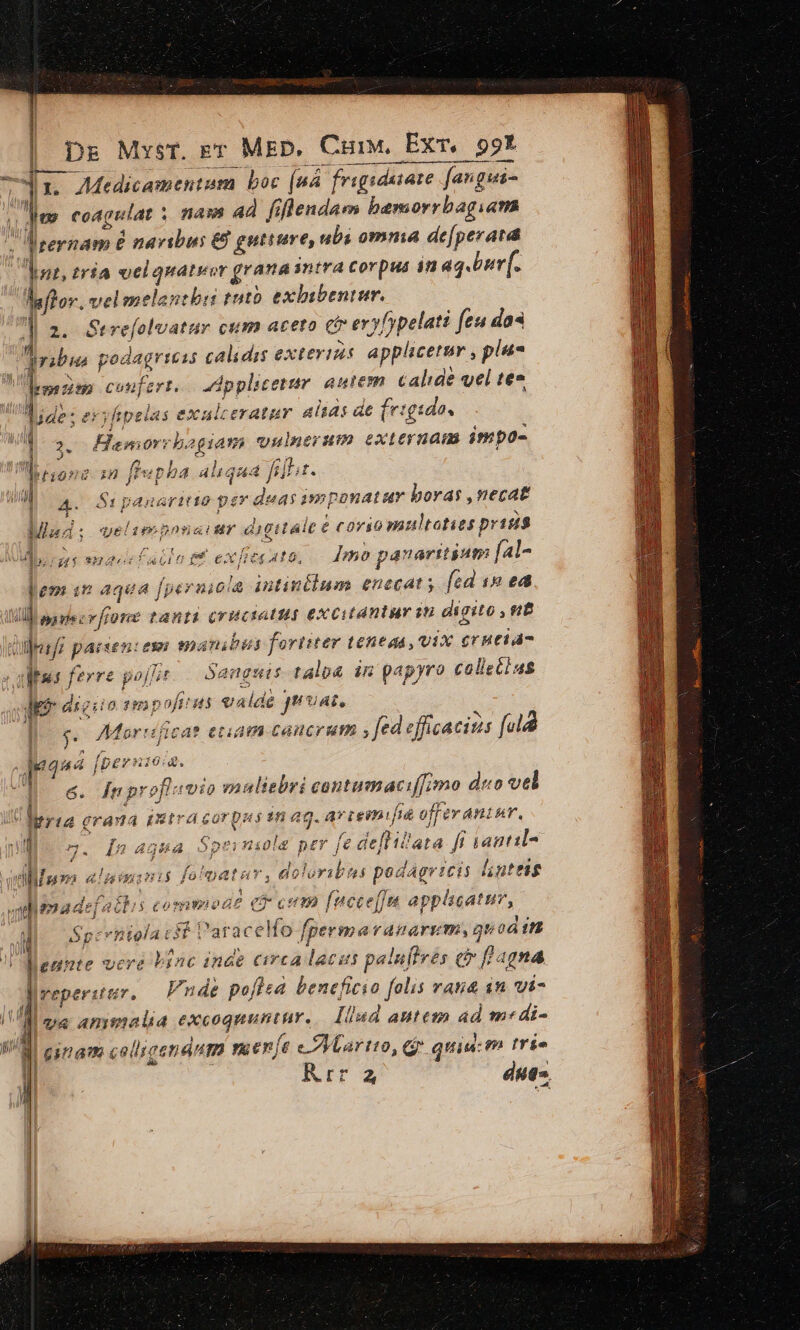 DE MYST. ET MED. CHIM. EXT. 991
1. Medicamentum hoc ſuâ frigiditate ſangui-
coagulat: nam ad ſiſtendam hæmorrhagiam
è naribus & gutture, ubi omnia deſperata
tria vel quatuor grana intra corpus in aq. burſ.
vel melanthii tutò exhibentur.
2. Si reſolvatur cum aceto & eryſypelati ſeu do-
podagricis calidis exteriùs applicetur, plu-
confert. Applicetur autem calidè vel te-
eryſipelas exulceratur aliàs de frigido.
3. Hemorrhagiam vulnerum externam impo-
in ſtupha aliqua ſiſtit.
4. Si panaritio per duas imponatur horas, necat
vel imponatur digitale è corio multoties priùs
exſiccato. Imo panaritium ſal-
in aqua ſperniola intinctum enecat; ſed in ea
tanti cruciatus excitantur in digito, ut
patientem manibus fortiter teneas, vix crucia-
ferre poſſit. Sanguis talpæ in papyro collectus
digito impoſitus valdè juvat.
5. Mortificat etiam cancrum, ſed efficaciùs ſolâ
ſperniola.
6. In profluvio muliebri contumaciſſimo duo vel
grana intra corpus in aq. artemiſiæ offerantur.
7. In aqua Sperniolæ per ſe deſtillata ſi tantil-
aluminis ſolvatur, doloribus podagricis linteis
madefactis commodè & cum ſucceſſu applicatur,
Sperniola eſt Paracelſo ſperma ranarum, quod in
verè hinc inde circa lacus paluſtres & ſtagna
reperitur. Vnde poſtea beneficio ſolis ranæ in vi-
va animalia excoquuntur. Illud autem ad medi-
cinam colligendum menſe Martio, & quidem tri-
Rrr 2 dua-